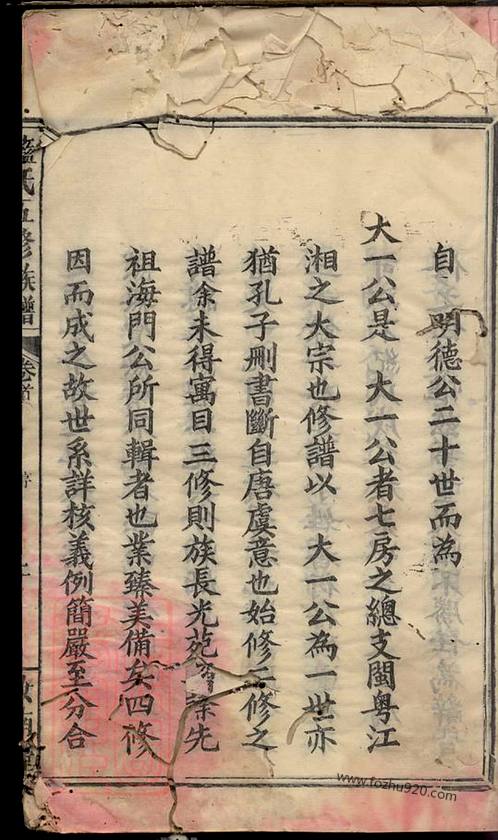 自　明德公二十世而為
大一公是　大一公者七房之總支閩粤江
湘之大宗也修譜以　大一公為一世亦
猶孔子刪書斷自唐虞意也始修二修之
譜余未得寓目三修則族長光苑　余先
祖海門公所同輯者也業臻美備矣四修
因而成之故世系詳核義例簡嚴至分合
藍氏五修族譜
卷首
www.fozhu920.com